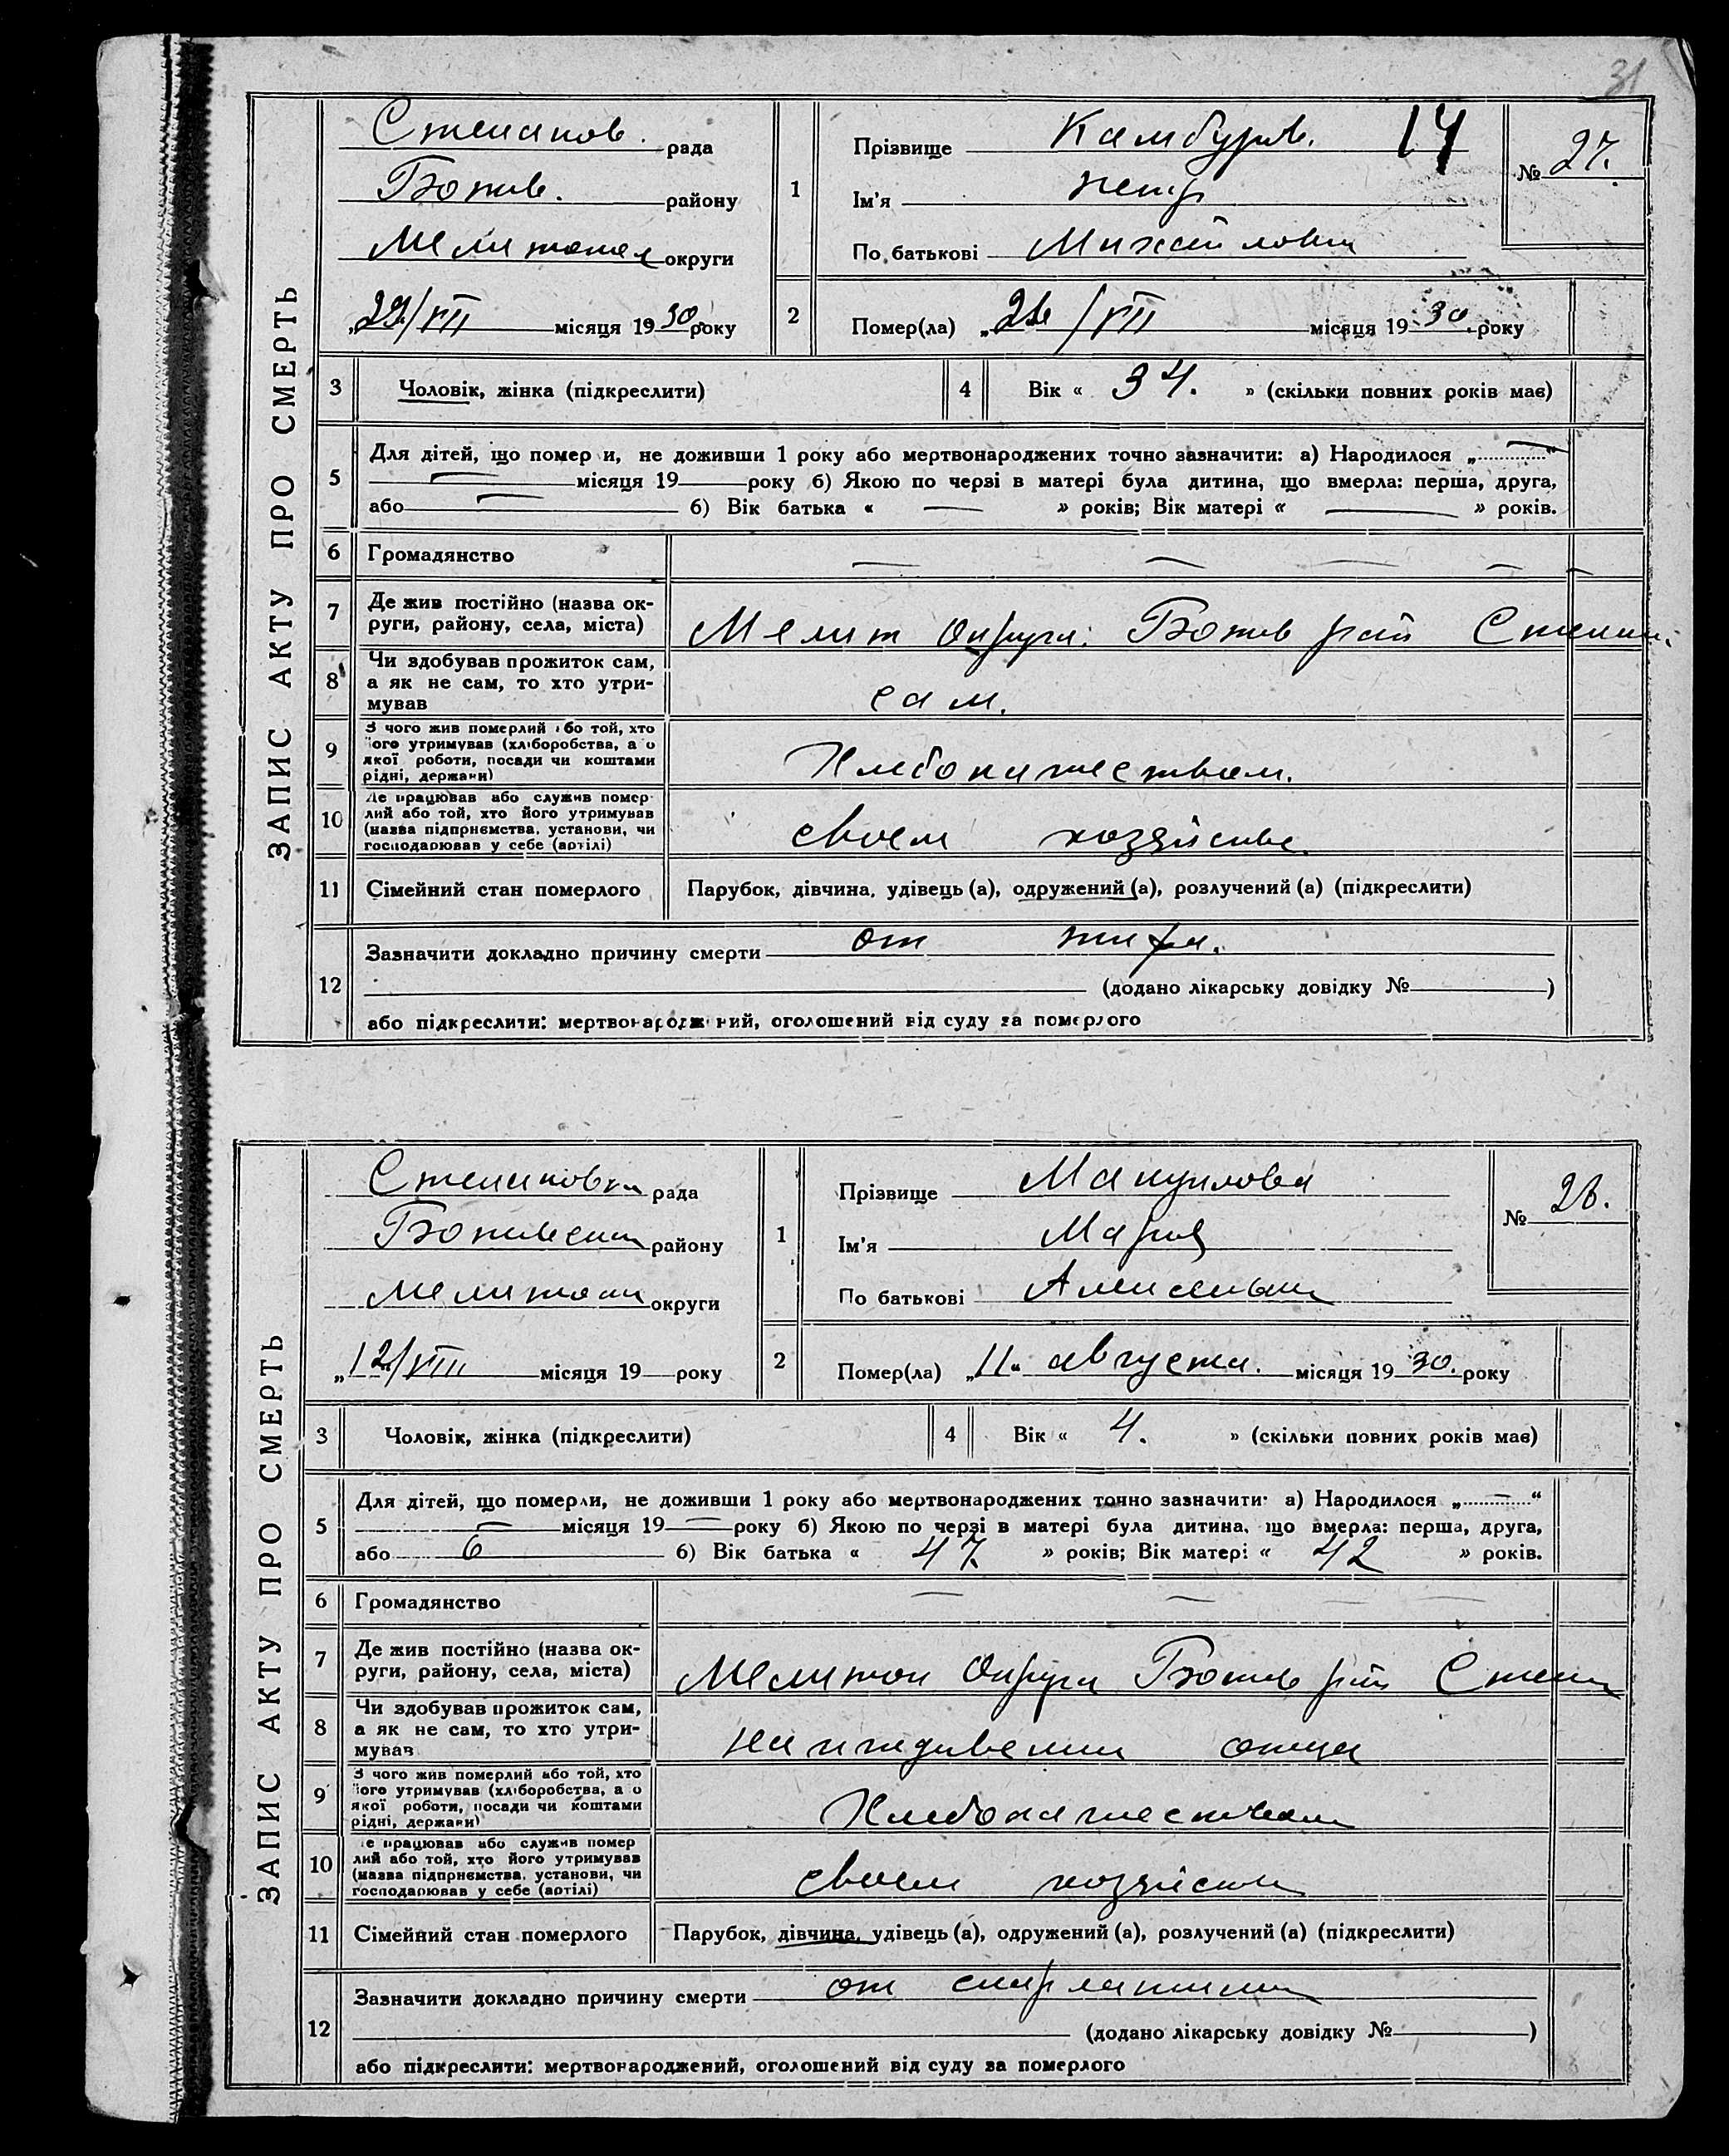 31
ЗАПИС АКТУ ПРО СМЕРТЬ
Степанов. рада
Ботив. району
Мелитопол округи
„22/VII місяця 1930 року
1
Прізвище Камбуров. 14
Ім'я Петр
По батькові Михайлович
№ 27.
2
Помер(ла) „21/VII місяця 1930. року
3 Чоловік, жінка (підкреслити)
4 Вік « 34. » (скільки повних років має)
5 Для дітей, що помер и, не доживши 1 року або мертвонароджених точно зазначити: а) Народилося „—“
— місяця 19 року б) Якою по черзі в матері була дитина, що вмерла: перша, друга,
або — б) Вік батька « — » років; Вік матері « — » років.
6 Громадянство — — — —
7 Де жив постійно (назва ок-
руги, району, села, міста) Мелит Округи. Ботив рай Степан.
8 Чи здобував прожиток сам,
а як не сам, то хто утри-
мував сам.
9 З чого жив померлий або той, хто
його утримував (хліборобства, а о
якої роботи, посади чи коштами
рідні, держави) Хлебопашеством.
10 Де працював або служив помер
лий або той, хто його утримував
(назва підприємства, установи, чи
господарював у себе (артілі) своем хозяйстве.
11 Сімейний стан померлого Парубок, дівчина, удівець (а), одружений (а), розлучений (а) (підкреслити)
12 Зазначити докладно причину смерти от тифа.
(додано лікарську довідку № )
або підкреслити: мертвонароджений, оголошений від суду за померлого
ЗАПИС АКТУ ПРО СМЕРТЬ
Степановки рада
Ботивский району
Мелитоп округи
„12/VIII місяця 19 року
1
Прізвище Мануилова
Ім'я Мария
По батькові Алексеевна
№ 28.
2
Помер(ла) „11“ августа. місяця 1930. року
3 Чоловік, жінка (підкреслити)
4 Вік « 4. » (скільки повних років має)
5 Для дітей, що померли, не доживши 1 року або мертвонароджених точно зазначити: а) Народилося „—“
— місяця 19— року б) Якою по черзі в матері була дитина, що вмерла: перша, друга,
або 6 б) Вік батька « 47. » років; Вік матері « 42 » років.
6 Громадянство — — — —
7 Де жив постійно (назва ок-
руги, району, села, міста) Мелитоп Округи Ботив рай Степан
8 Чи здобував прожиток сам,
а як не сам, то хто утри-
мував на иждивении отца
9 З чого жив померлий або той, хто
його утримував (хліборобства, а о
якої роботи, посади чи коштами
рідні, держави) Хлебопашеством
10 Де працював або служив помер
лий або той, хто його утримував
(назва підприємства, установи, чи
господарював у себе (артілі) своем хозяйстве
11 Сімейний стан померлого Парубок, дівчина, удівець (а), одружений (а), розлучений (а) (підкреслити)
12 Зазначити докладно причину смерти от скарлатины
(додано лікарську довідку № )
або підкреслити: мертвонароджений, оголошений від суду за померлого